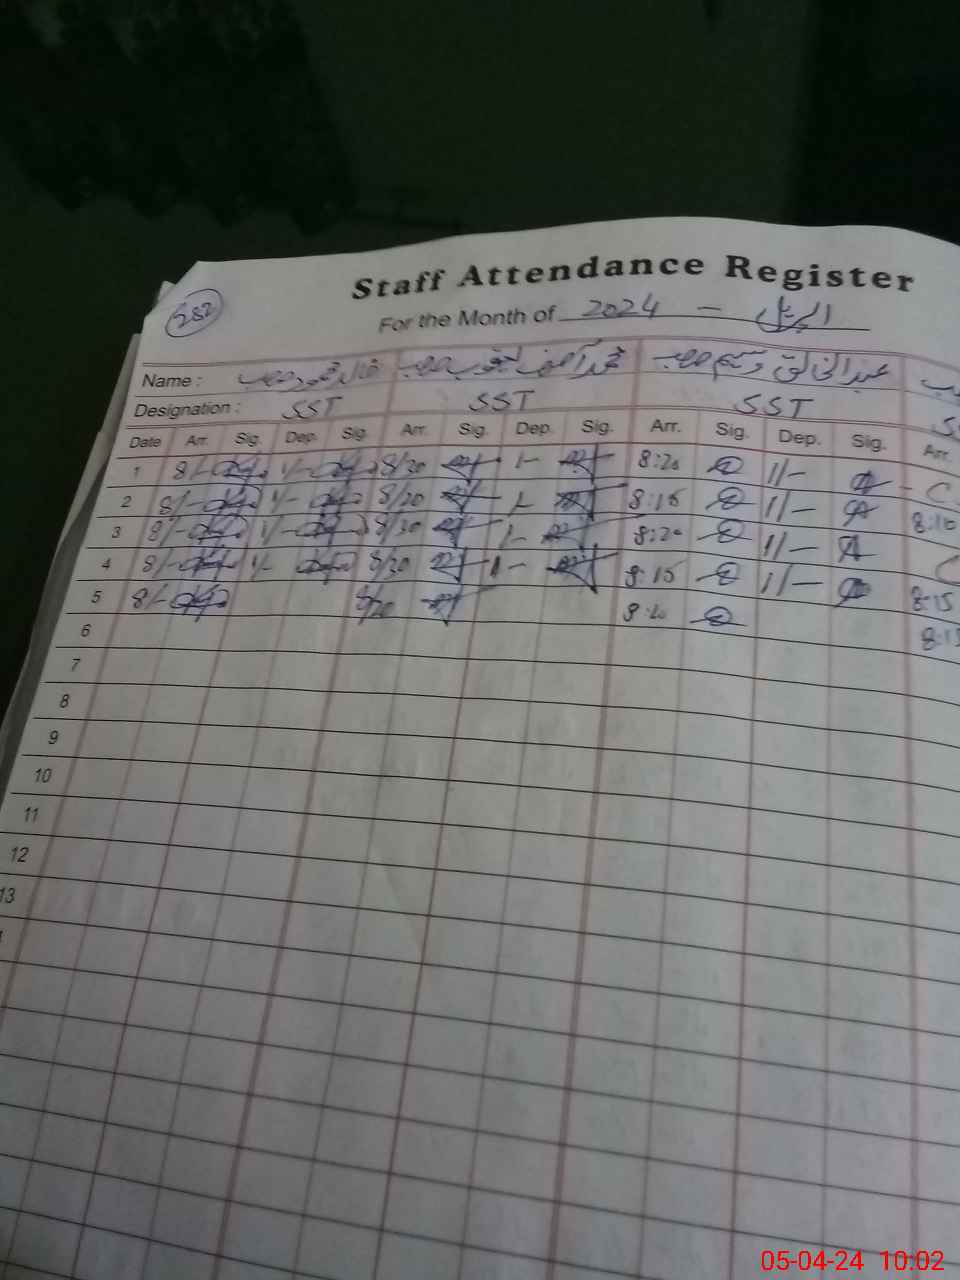 Staff Attendance Register
282
For the Month of 2024 - اپریل
Name : خالد محمود صاحب محمد آصف یعقوب صاحب عبدالخالق وسیم صاحب
Designation : SST SST SST S
Date Arr. Sig. Dep. Sig. Arr. Sig. Dep. Sig. Arr. Sig. Dep. Sig. Arr.
1 8/- 1/- 8/20 1- 8:20 1/- C
2 8/- 1/- 8/20 1- 8:15 1/- 8:10
3 8/- 1/- 8/30 1- 8:20 1/- C
4 8/- 1/- 8/30 1- 8:15 1/- 8:15
5 8/- 8/20 8:20 8:15
6
7
8
9
10
11
12
13
05-04-24 10:02